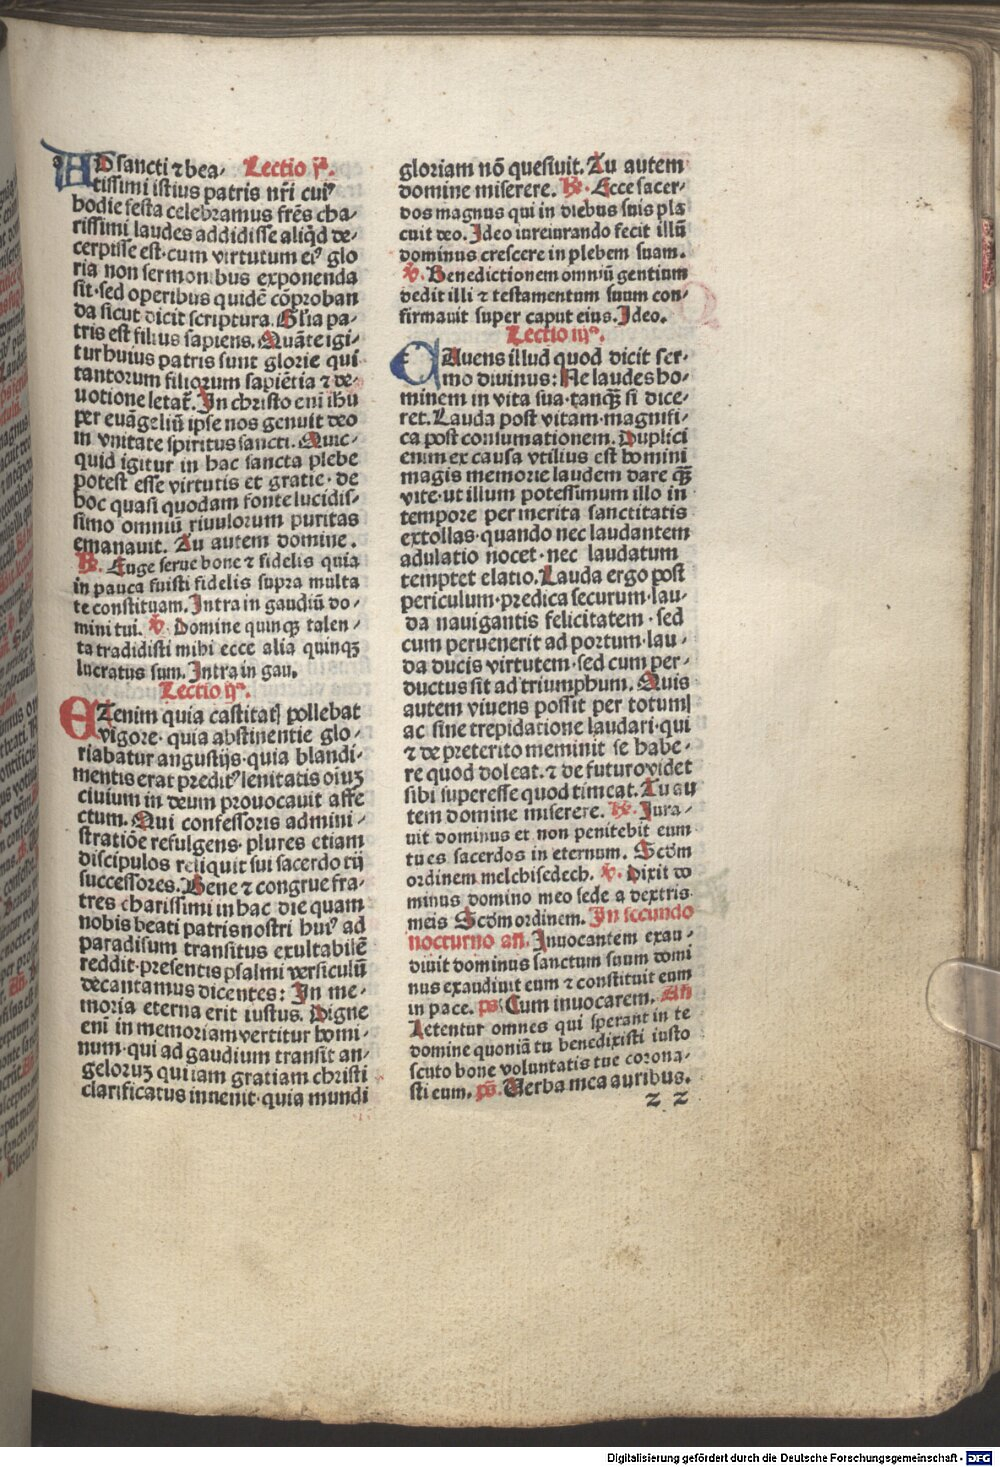 AD sancti ⁊ bea⸗ Lectio jª.
tissimi istius patris nr̄i cuiꝰ
hodie festa celebramus fr̄es cha⸗
rissimi laudes addidisse aliq̇d de⸗
cerpsisse est·cum virtutum eiꝰ glo
ria non sermonibus exponenda
sit·sed operibus quidē cōproban
da sicut dicit scriptura. Gl̄ia pa⸗
tris est filius sapiens. Quāte igi⸗
tur huius patris sunt glorie qui
tantorum filiorum sapiētia ⁊ de⸗
uotione letat᷑. In christo eni ihū
per euāgeliū ipse nos genuit deo
in vnitate spiritus sancti. Quic⸗
quid igitur in hac sancta plebe
potest esse virtutis et gratie· de
hoc quasi quodam fonte lucidis⸗
simo omniū riuulorum puritas
emanauit. Tu autem domine.
℟. Euge serue bone ⁊ fidelis quia
in pauca fuisti fidelis supra multa
te constituam. Intra in gaudiū do⸗
mini tui. ℣. Domine quinqꝫ talen⸗
ta tradidisti mihi ecce alia quinqꝫ
lucratus sum. Intra in gau.
Lectio ijª.
ETenim quia castitatꝭ pollebat
vigore· quia abstinentie glo⸗
riabatur angustijs·quia blandi⸗
mentis erat preditꝰ lenitatis oīuꝫ
ciuium in deum prouocauit affe
ctum. Qui confessoris admini⸗
stratiōe refulgens· plures etiam
discipulos reliquit sui sacerdotij
successores. Bene ⁊ congrue fra⸗
tres charissimi in hac die quam
nobis beati patris nostri huiꝰ ad
paradisum transitus exultabilē
reddit·presentis psalmi versiculū
decantamus dicentes: In me⸗
moria eterna erit iustus. Digne
eni in memoriam vertitur homi⸗
num·qui ad gaudium transit an⸗
geloruꝫ qui iam gratiam christi
clarificatus inuenit·quia mundi
gloriam nō quesiuit. Tu autem
domine miserere. ℟. Ecce sacer⸗
dos magnus qui in diebus suis pla
cuit deo. Ideo iureiurando fecit illū
dominus crescere in plebem suam.
℣. Benedictionem omniū gentium
dedit illi ⁊ testamentum suum con⸗
firmauit super caput eius. Ideo.
Lectio iijª.
CAuens illud quod dicit ser⸗
mo diuinus: Ne laudes ho⸗
minem in vita sua·tanqꝫ si dice⸗
ret. Lauda post vitam·magnifi⸗
ca post consumationem. Duplici
enim ex causa vtilius est homini
magis memorie laudem dare qꝫ
vite·ut illum potessimum illo in
tempore per merita sanctitatis
extollas·quando nec laudantem
adulatio nocet·nec laudatum
temptet elatio. Lauda ergo post
periculum·predica securum·lau⸗
da nauigantis felicitatem·sed
cum peruenerit ad portum·lau⸗
da ducis virtutem·sed cum per⸗
ductus sit ad triumphum. Quis
autem viuens possit per totum
ac sine trepidatione laudari·qui
⁊ de preterito meminit se habe⸗
re quod doleat·⁊ de futuro videt
sibi superesse quod timeat. Tu au
tem domine miserere. ℟. Iura⸗
uit dominus et non penitebit eum
tu es sacerdos in eternum. Scd̄m
ordinem melchisedech. ℣. Dixit do
minus domino meo sede a dextris
meis Scd̄m ordinem. In secundo
nocturno an̄. Inuocantem exau⸗
diuit dominus sanctum suum domi
nus exaudiuit eum ⁊ constituit eum
in pace. ps̄. Cum inuocarem. An̄
Letentur omnes qui sperant in te
domine quoniā tu benedixisti iusto
scuto bone voluntatis tue corona⸗
sti eum. ps̄. Uerba mea auribus.
z z
Digitalisierung gefördert durch die Deutsche Forschungsgemeinschaft - DFG